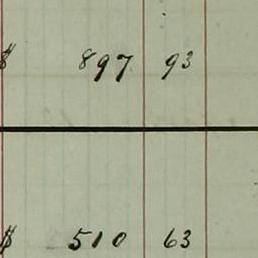 $ 897 93
$ 510 63